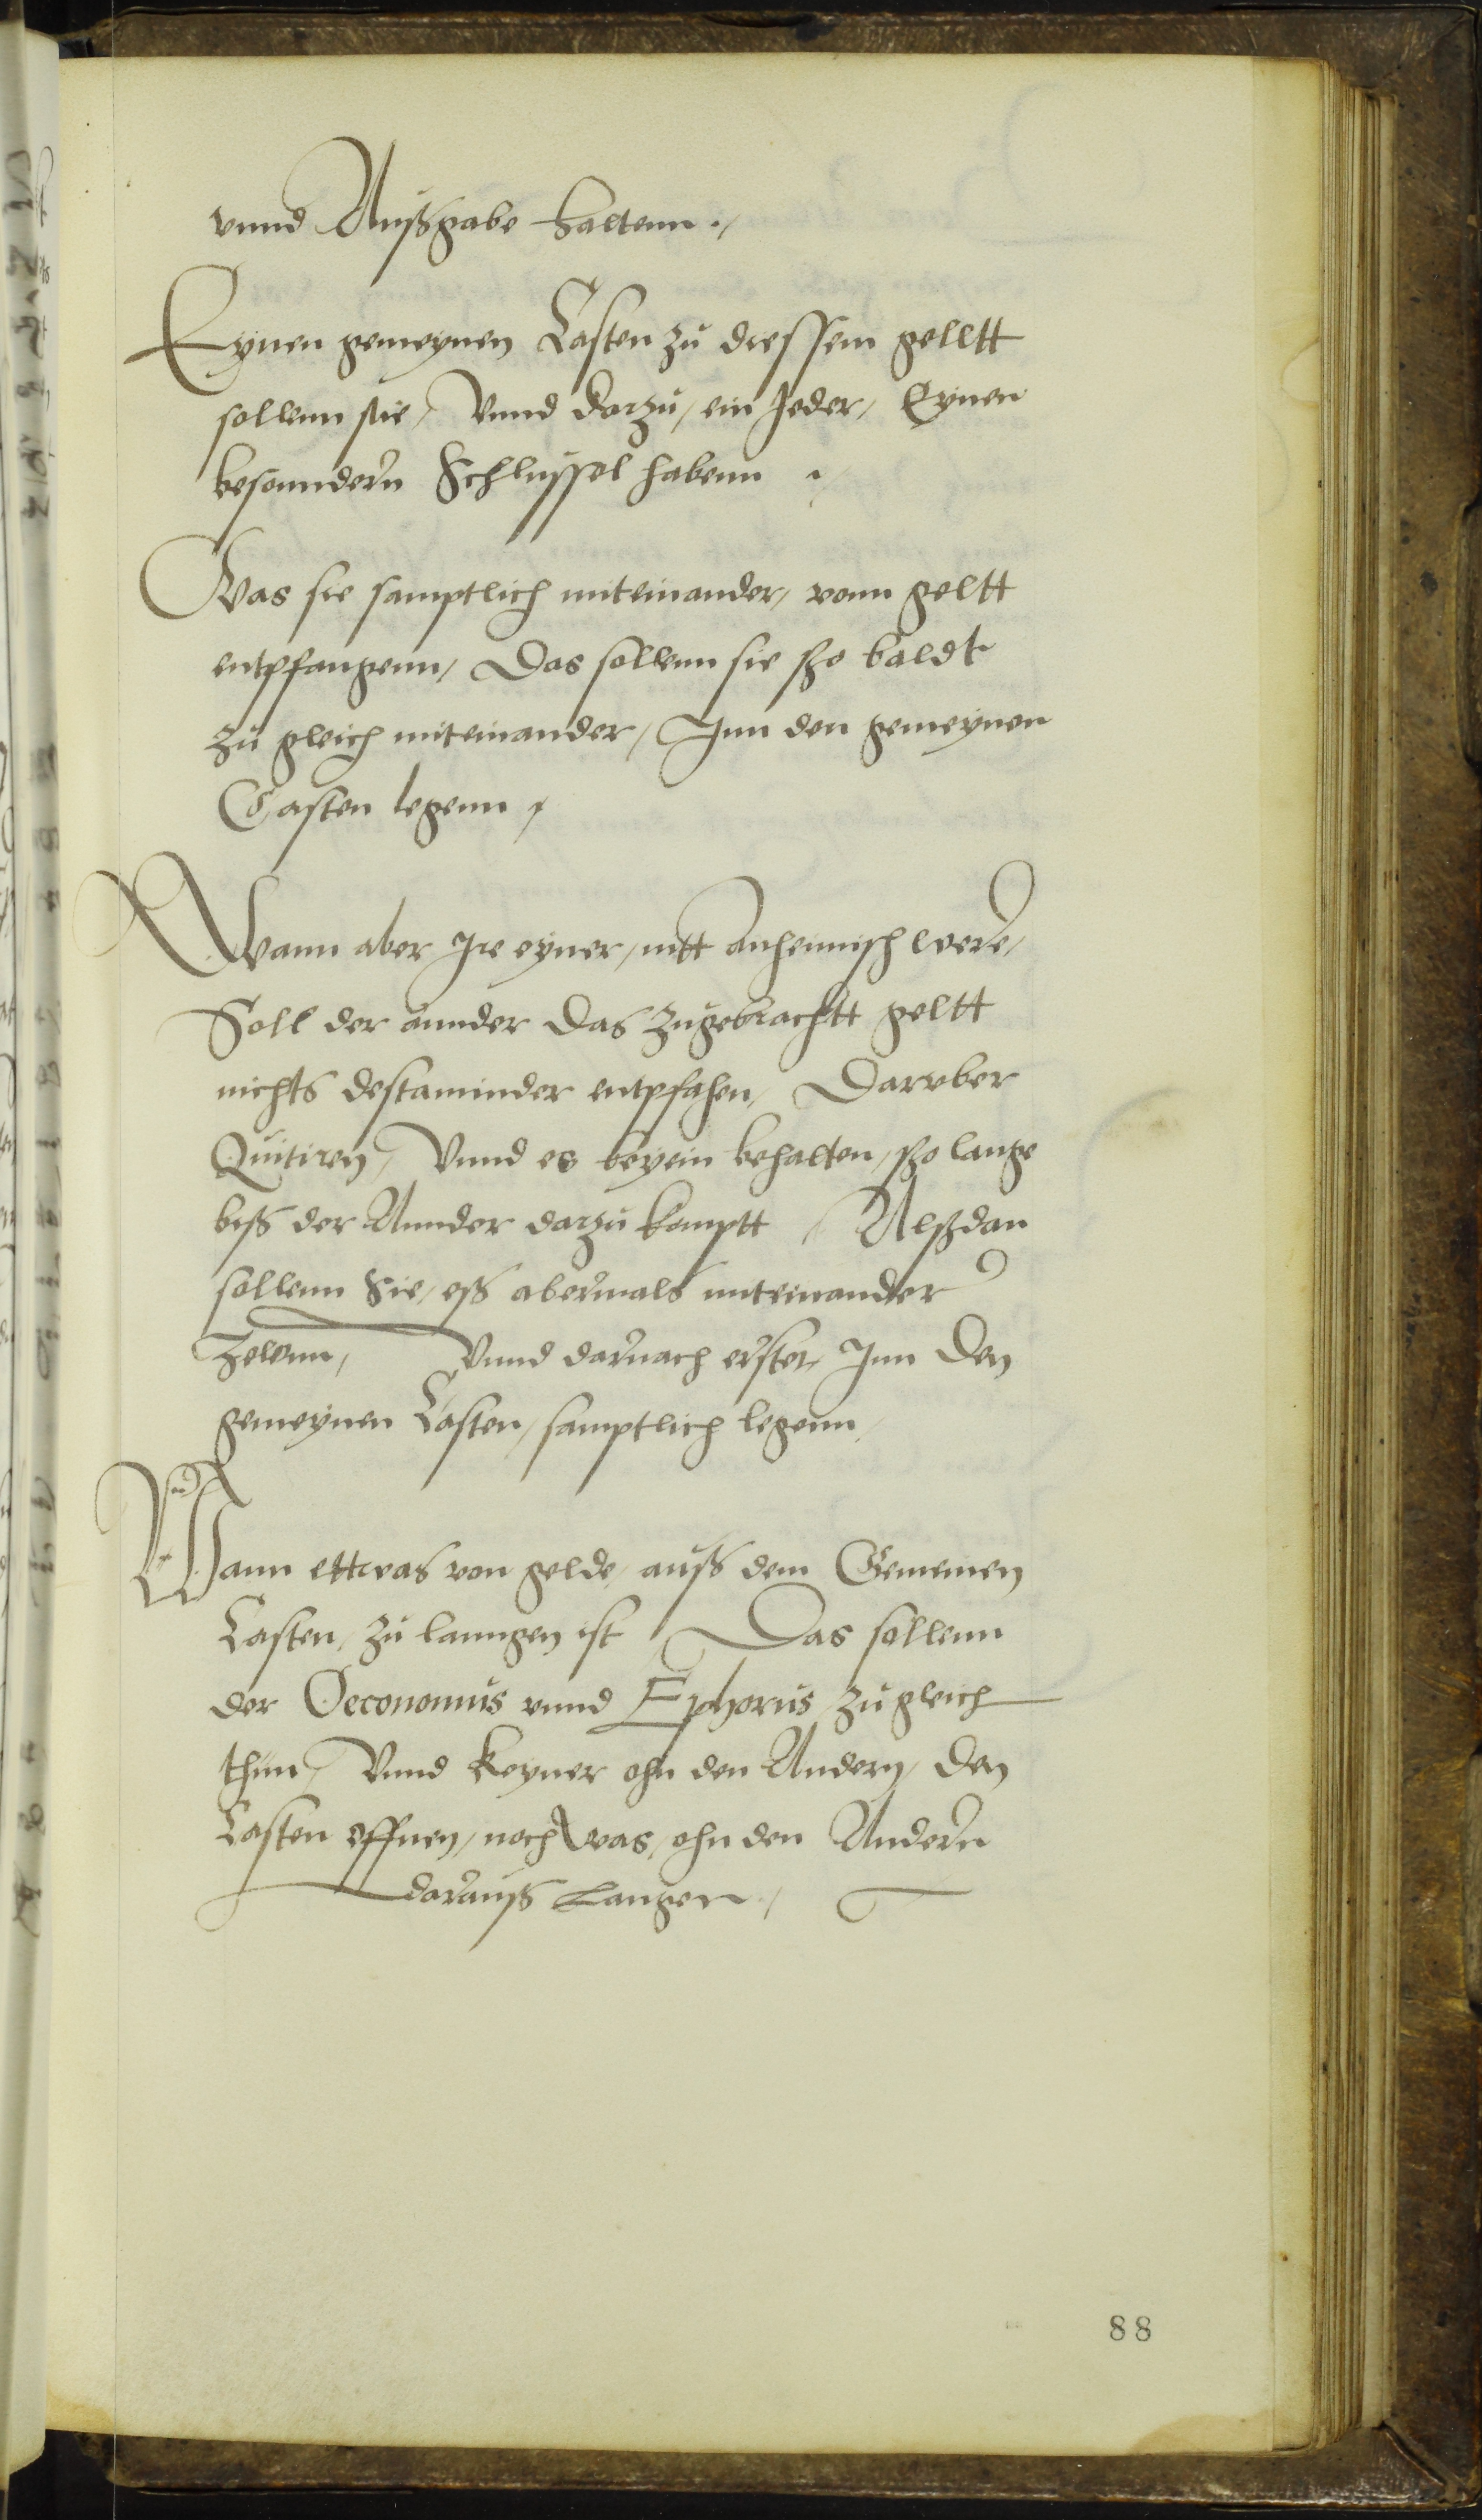 vnnd Außgabe haltenn .,
Eynen gemeynen Casten zu diessem gelltt
sollenn sie, Vnnd darzu, ein Jeder, Eynen
besonndern Schlussel habenn .,
Was sie samptlich miteinander, vonn geltt
entpfangenn, Das sollenn sie sho baldt
zu gleich miteinander, Inn den gemeynen
Casten legenn ,
Wann aber Ire eyner, nitt anheimisch were,
Soll der annder das zugebrachtt geltt
nichts destaminder entpfahen, Darvber
Quitiren, Vnnd es beyein behalten, sho lange
biß der Annder darzu komptt , Alßdan
sollenn Sie, eß abermals miteinander
Zelenn, Vnnd darnach erster Inn Den
gemeynen Casten, samptlich legenn,
Wann ettwas von gelde, auß dem Gemeinen
Casten, zu lanngen ist , Das sollenn
der Oeconomus vnnd Ephorus, zu gleich
thun, Vnnd Keyner ohn den Andern, den
Casten öffnen, noch was, ohn den Andern
darauß Langen .,
88